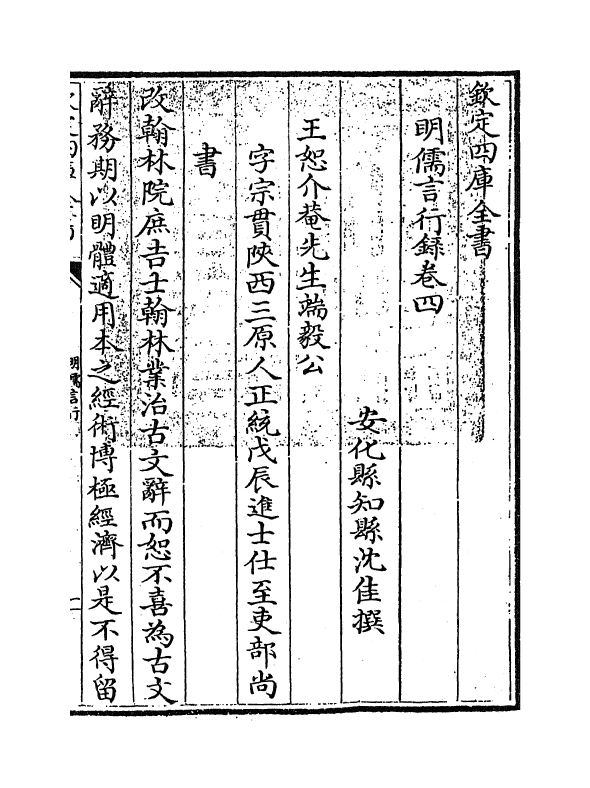 欽定四庫全書
明儒言行録卷四
安化縣知縣沈佳撰
王恕介菴先生端毅公
字宗貫陝西三原人正統戊辰進士仕至吏部尚
書
改翰林院庶吉士翰林業治古文辭而恕不喜為古文
辭務期以明體適用本之經術博極經濟以是不得留
明儒言行